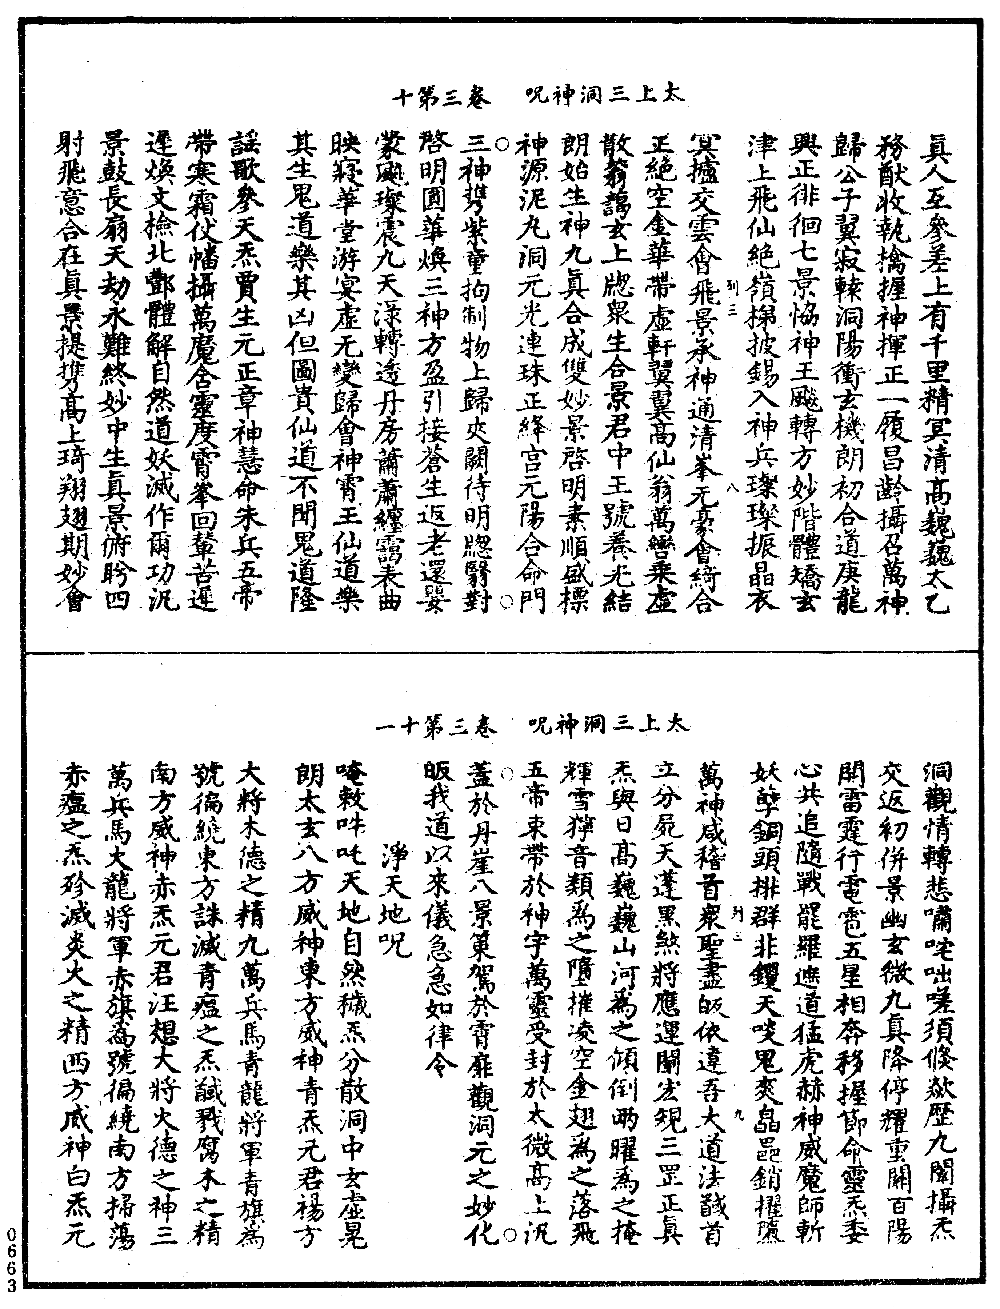 太上三洞神呪　卷三第十
真人互參差上有千里精冥清高巍巍太乙
務猷收執擒握神揮正一履昌齡攝召萬神
歸公子翼寂轃洞陽衝玄機朗初合道庚龍
興正徘徊七景恊神王飈轉方妙階體矯玄
津上飛仙絕嶺梯披錫入神兵璨璨振晶衣
列三
八
冥攄交雲會飛景承神通清峯无豪會綺合
正絕空金華帶虛軒翼翼高仙翁萬轡乘虛
散蓊藹玄上牕眾生合景君中王號養光結
朗始生神九真合成雙妙景啓明素順盛標
神源泥丸洞元光連珠正絳宮元陽合命門
三神携紫童拘制物上歸夾闕待明牕翳對
啓明圓華煥三神方盈引接蒼生返老還嬰
蒙飈璨震九天渌轉透丹房蕭蕭纏靄表曲
映寢華堂游宴虛无變歸會神霄王仙道樂
其生鬼道樂其凶但圖貴仙道不聞鬼道隆
謠歌參天炁賈生元正章神慧命朱兵五帝
帶寒霜仗幡攝萬魔含靈度霄峯回輦苦遲
遲煥文檢北酆體解自然道妖滅作爾功况
景鼓長扇天劫永難終妙中生真景俯盻四
射飛意合在真景提携高上琦翔翅期妙會
太上三洞神呪　卷三第十一
洞觀情轉悲嘯咤咄嗟須倏欻歷九闈攝炁
交返初併景幽玄微九真降停耀重關百陽
開雷霆行電雹五星相奔移握節命靈炁委
心共追隨戰罷羅遮道猛虎赫神威魔師斬
妖孽銅頭排群非钁天啖鬼爽皛皅銷擢隳
列三
九
萬神咸稽首眾聖盡皈依違吾大道法馘首
立分屍天蓬黑煞將應運闡宏規三罡正真
炁與日高巍巍山河為之傾倒兩曜為之掩
輝雪獰音類為之隳摧凌空金翅為之落飛
五帝束帶於神宇萬靈受封於太微高上況
蓋於丹崖八景策駕於霄扉觀洞元之妙化
皈我道以來儀急急如律令
淨天地呪
唵敕㖀吒天地自然穢炁分散洞中玄虛晃
朗太玄八方威神東方威神青炁元君禓方
大將木德之精九萬兵馬青龍將軍青旗為
號徧繞東方誅滅青瘟之炁馘戮腐木之精
南方威神赤炁元君汪想大將火德之神三
萬兵馬火龍將軍赤旗為號徧繞南方掃蕩
赤瘟之炁殄滅炎火之精西方威神白炁元
0663